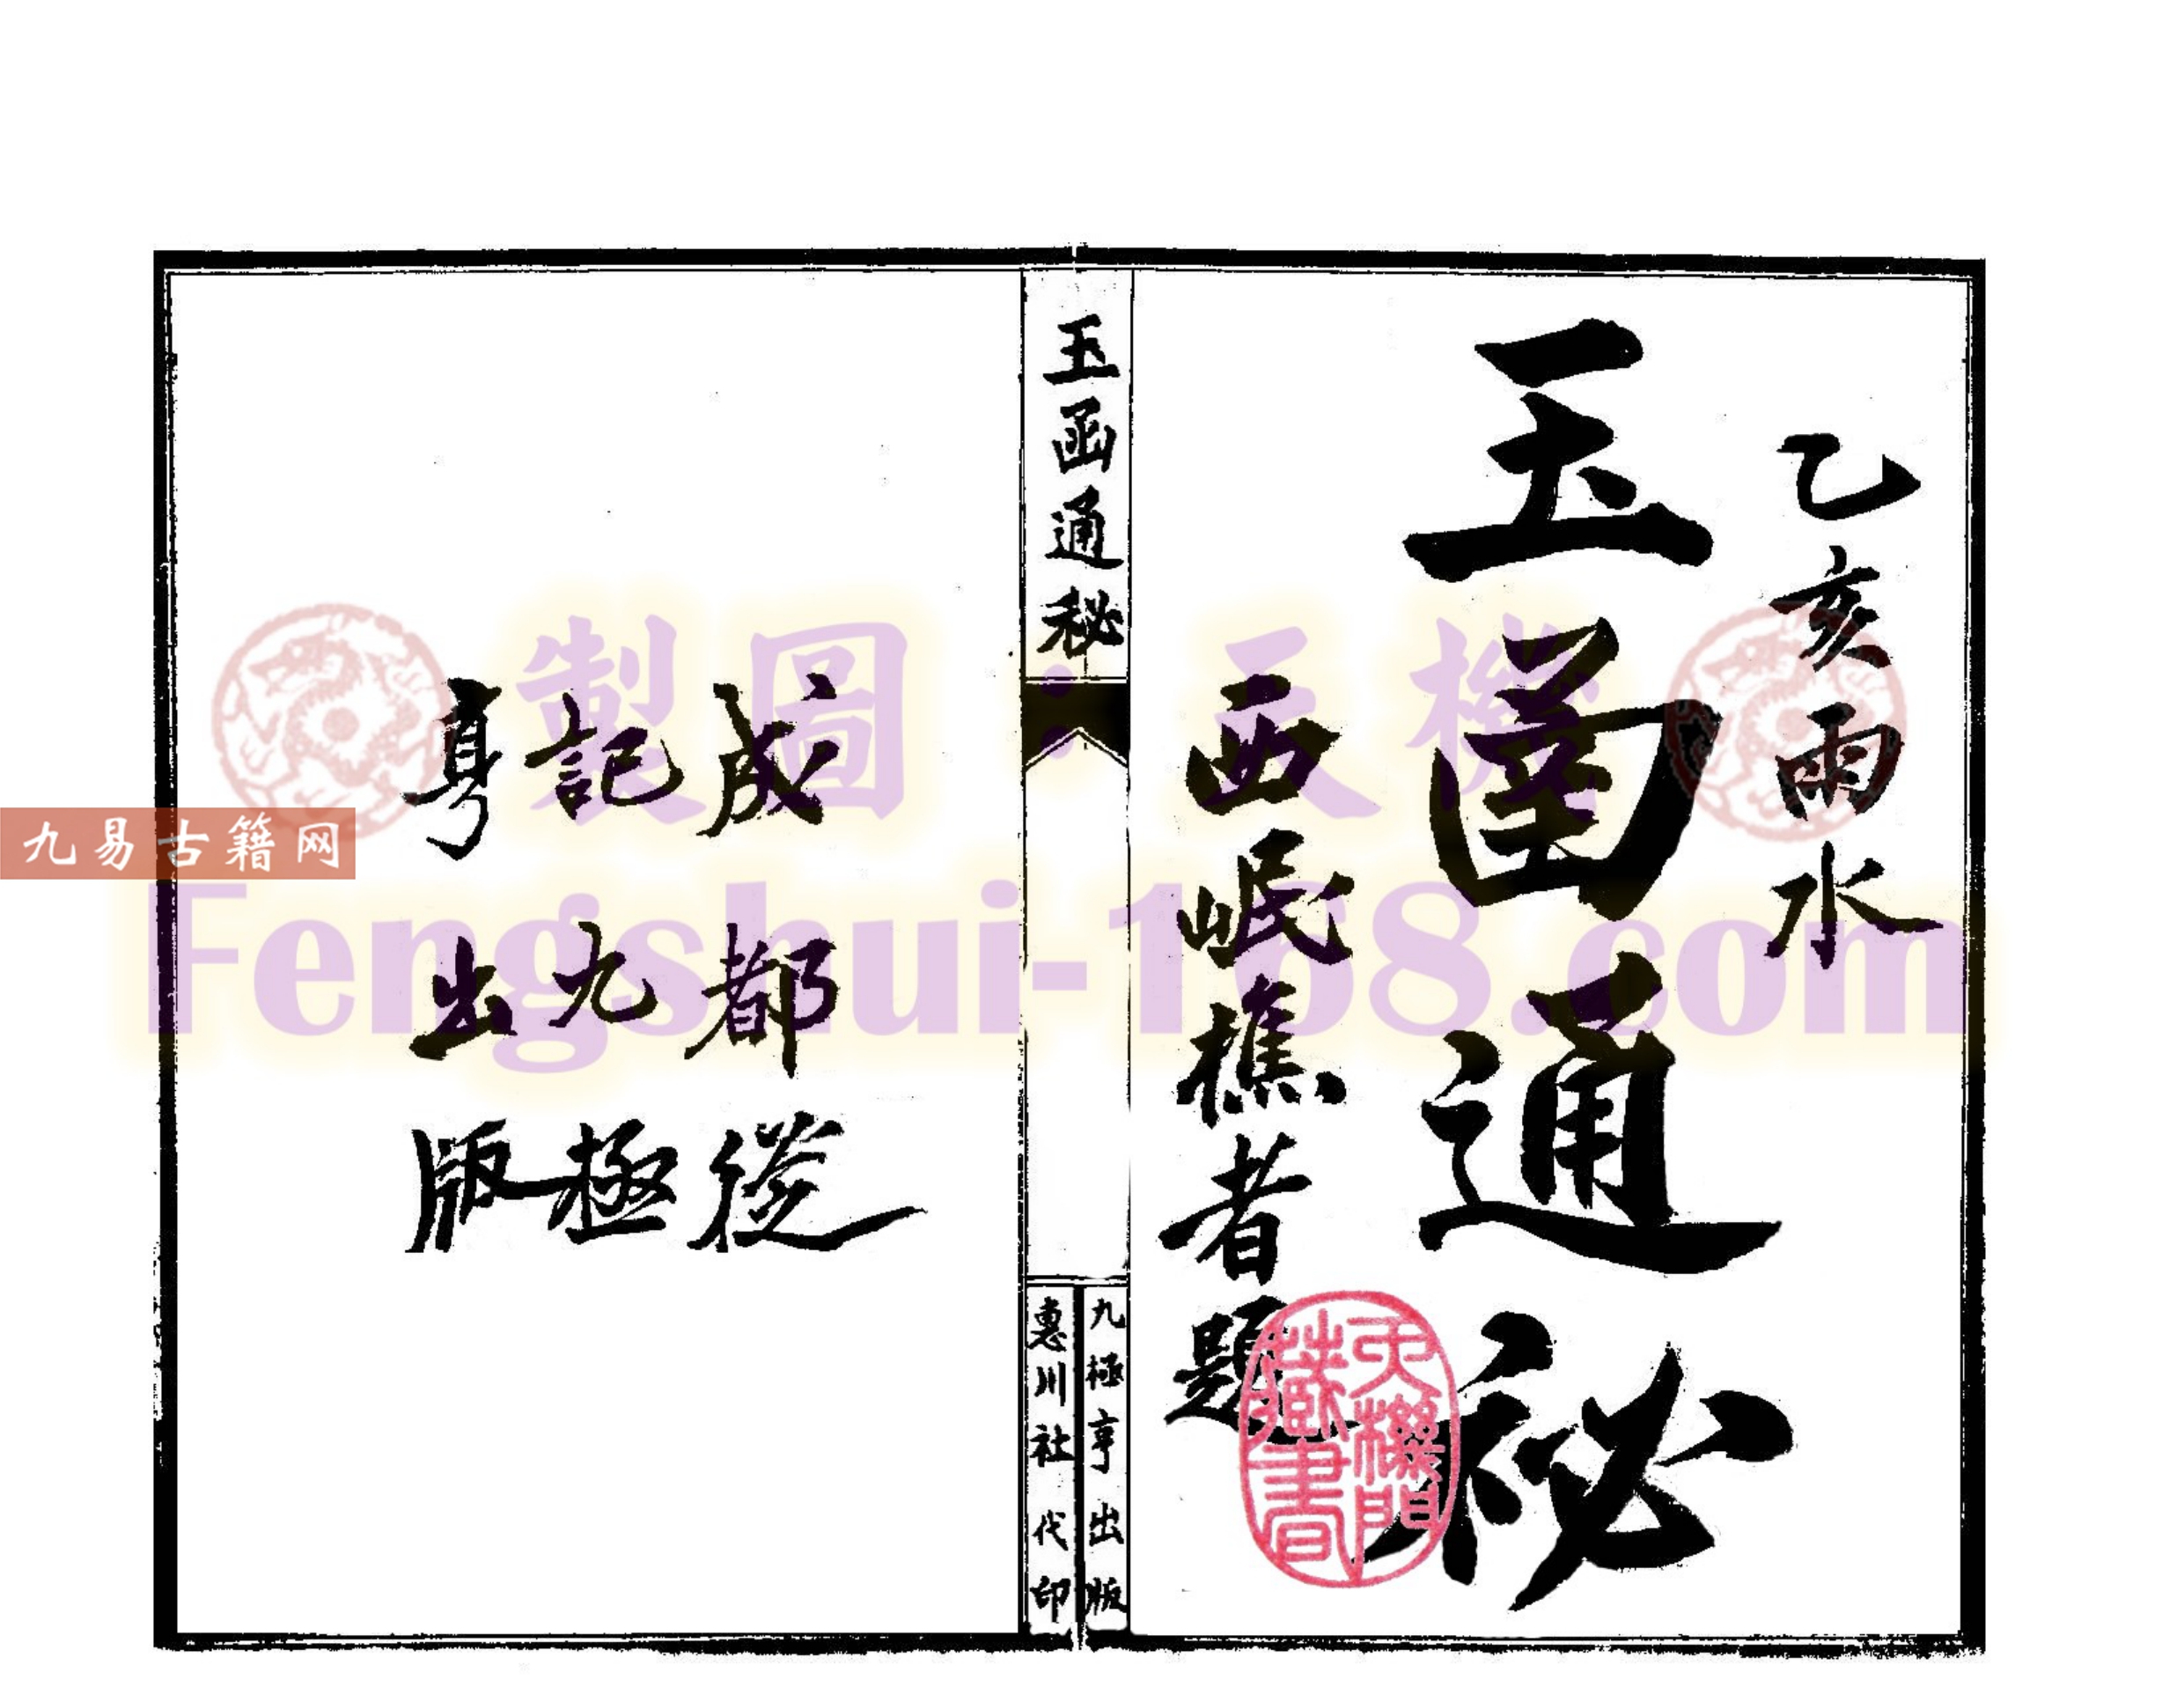 乙亥雨水
玉函通秘
西岷樵者題
天機門
藏書
玉函通秘
九極亨出版
惠川社代印
成都從
記九極
亨出版
製圖：天機
Fengshui-168.com
九易古籍网